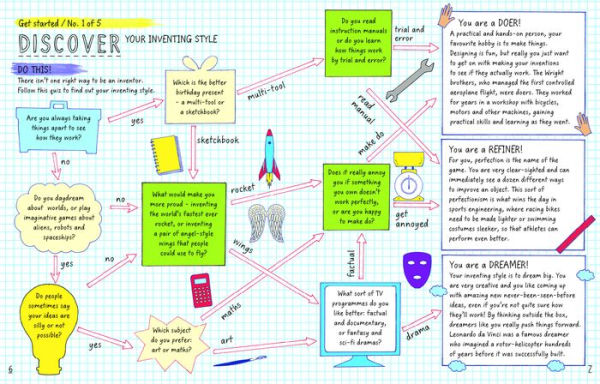 Get started / No. 1 of 5
DISCOVER YOUR INVENTING STYLE
DO THIS!
There isn't one right way to be an inventor.
Follow this quiz to find out your inventing style.
Are you always taking
things apart to see
how they work?
yes
no
Which is the better
birthday present
– a multi-tool or
a sketchbook?
multi-tool
sketchbook
Do you read
instruction manuals
or do you learn
how things work
by trial and error?
trial and
error
read
manual
Do you daydream
about worlds, or play
imaginative games about
aliens, robots and
spaceships?
no
yes
What would make you
more proud – inventing
the world's fastest ever
rocket, or inventing
a pair of angel-style
wings that people
could use to fly?
rocket
wings
Does it really annoy
you if something
you own doesn't
work perfectly,
or are you happy
to make do?
make do
get
annoyed
Do people
sometimes say
your ideas are
silly or not
possible?
no
yes
Which subject
do you prefer:
art or maths?
maths
art
What sort of TV
programmes do you
like better: factual
and documentary,
or fantasy and
sci-fi dramas?
factual
drama
You are a DOER!
A practical and hands-on person, your
favourite hobby is to make things.
Designing is fun, but really you just want
to get on with making your inventions
to see if they actually work. The Wright
brothers, who managed the first controlled
aeroplane flight, were doers. They worked
for years in a workshop with bicycles,
motors and other machines, gaining
practical skills and learning as they went.
You are a REFINER!
For you, perfection is the name of the
game. You are very clear-sighted and can
immediately see a dozen different ways
to improve an object. This sort of
perfectionism is what wins the day in
sports engineering, where racing bikes
need to be made lighter or swimming
costumes sleeker, so that athletes can
perform even better.
You are a DREAMER!
Your inventing style is to dream big. You
are very creative and you like coming up
with amazing new never-been-seen-before
ideas, even if you're not quite sure how
they'll work! By thinking outside the box,
dreamers like you really push things forward.
Leonardo da Vinci was a famous dreamer
who imagined a rotor-helicopter hundreds
of years before it was successfully built.
6
7